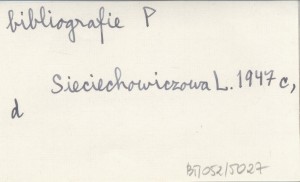 bibliografie P
Sieciechowiczowa L. 1947 c,
d
BП052/5027